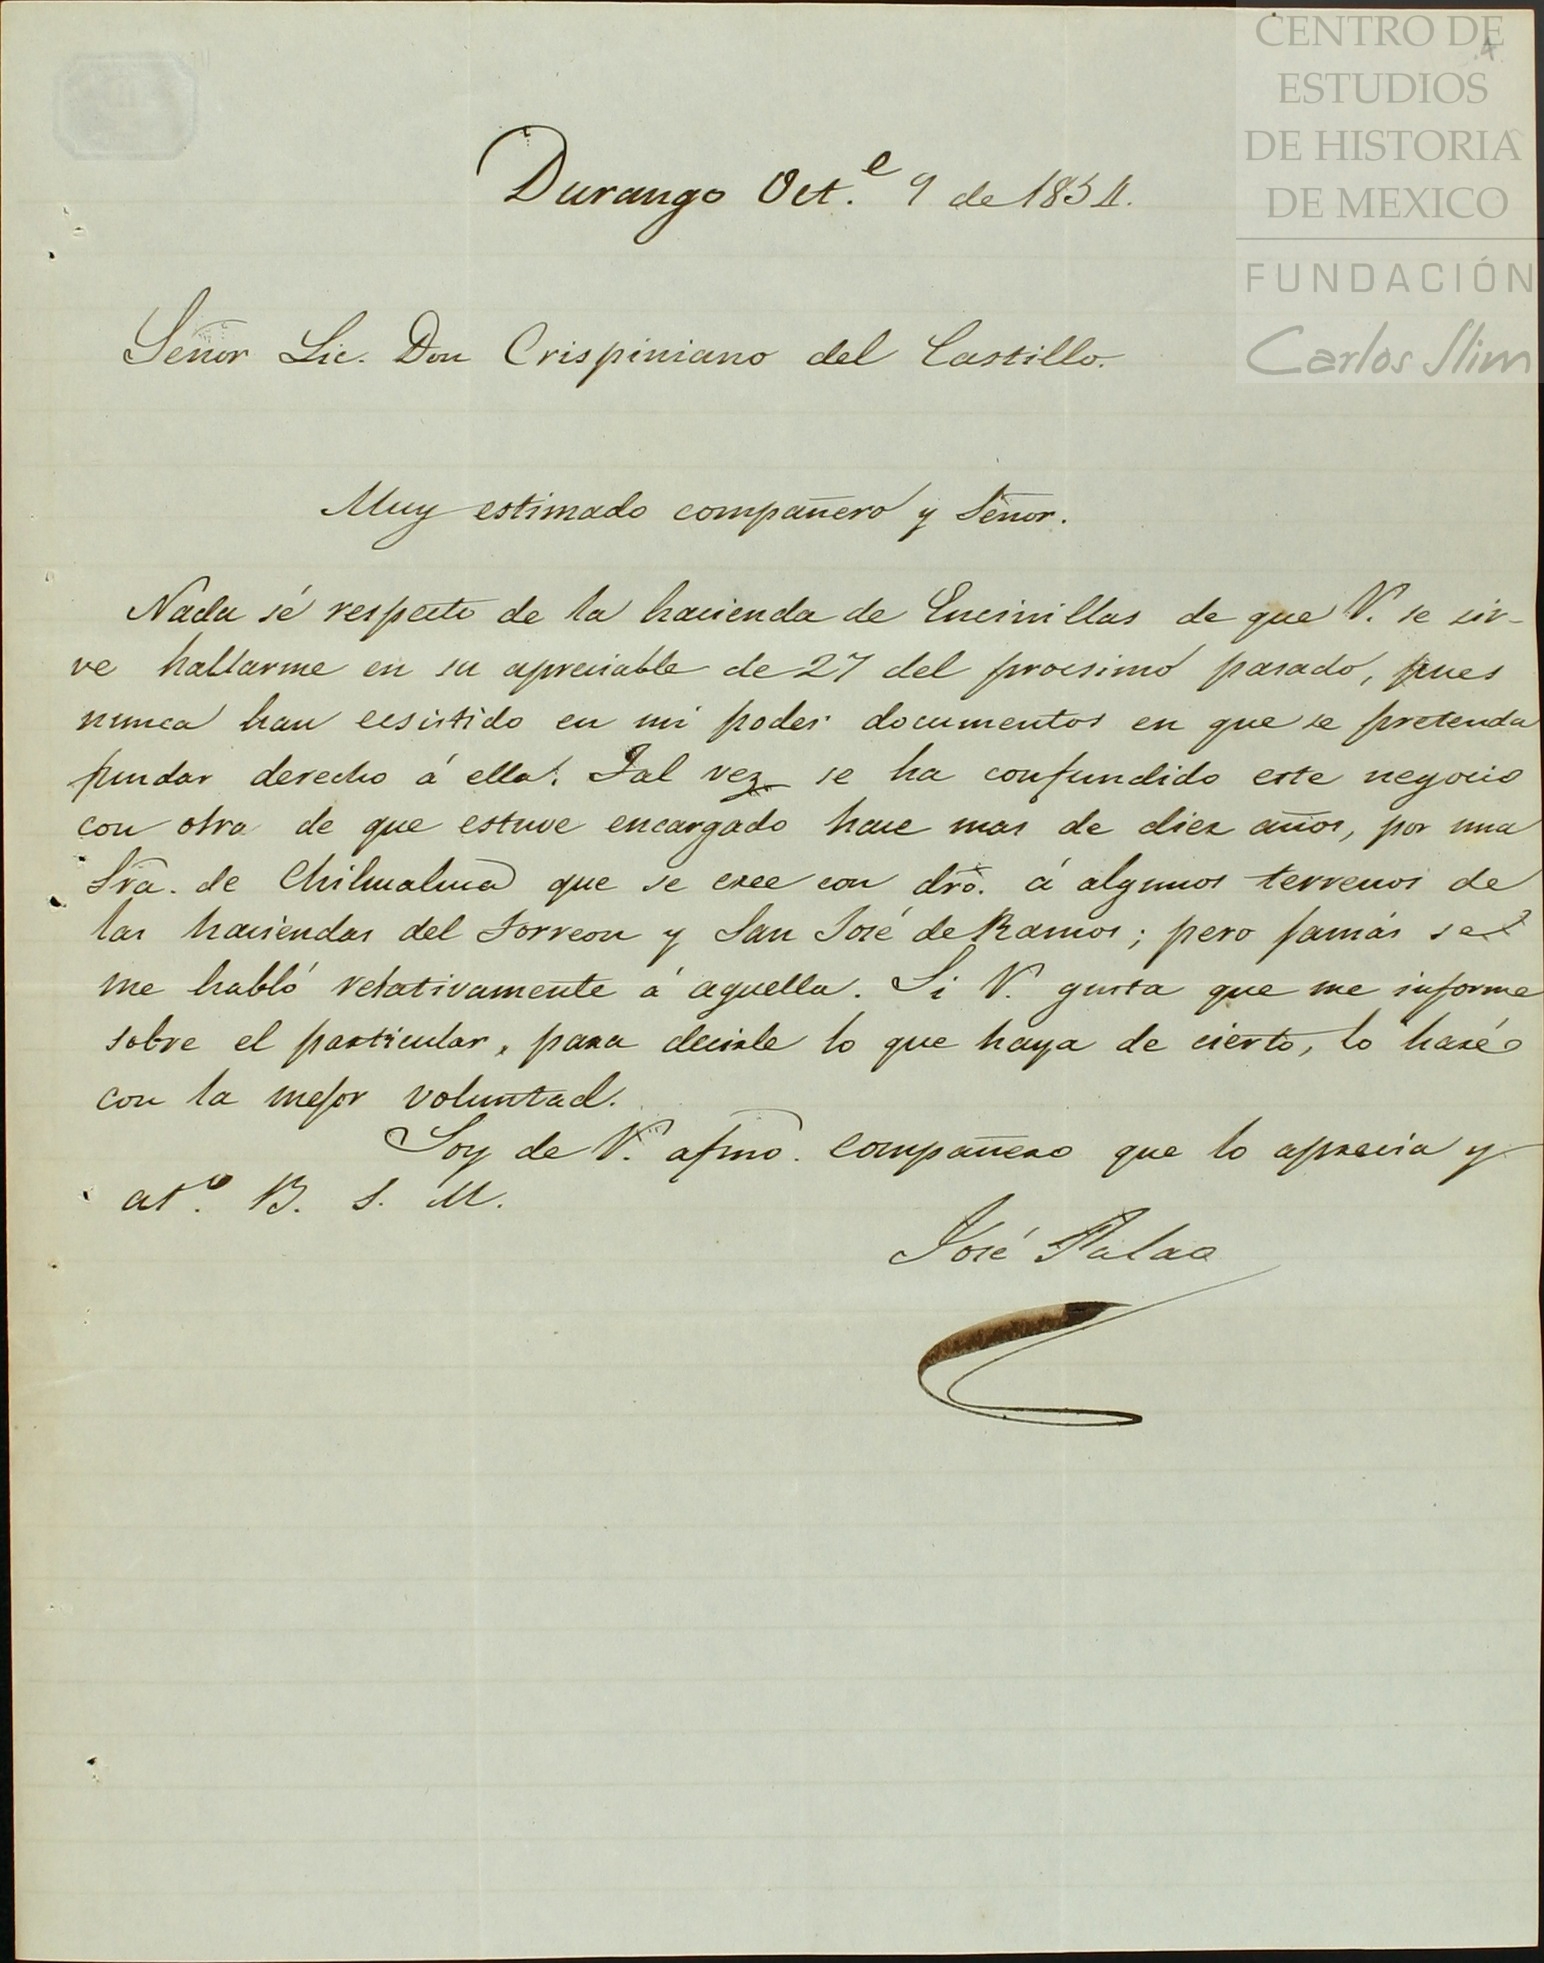 CENTRO DE
ESTUDIOS
DE HISTORIA
DE MEXICO
FUNDACIÓN
Carlos Slim
4
Durango Oct.e 9 de 1854.
Señor Lic. Don Crispiniano del Castillo.
Muy estimado compañero y Señor.
Nada sé respecto de la hacienda de Encinillas de que V. se sir-
ve hablarme en su apreciable de 27 del procsimo pasado, pues
nunca han ecsistido en mi poder documentos en que se pretenda
fundar derecho á ella. Tal vez se ha confundido este negocio
con otro de que estuve encargado hace mas de diez años, por una
Sra. de Chihuahua que se cree con dro. á algunos terrenos de
las haciendas del Torreon y San José de Ramos; pero jamás se
me habló relativamente á aquella. Si V. gusta que me informe
sobre el particular, para decirle lo que haya de cierto, lo haré
con la mejor voluntad.
Soy de V. afmo. compañero que lo aprecia y
at.o B. S. M.
José Palao